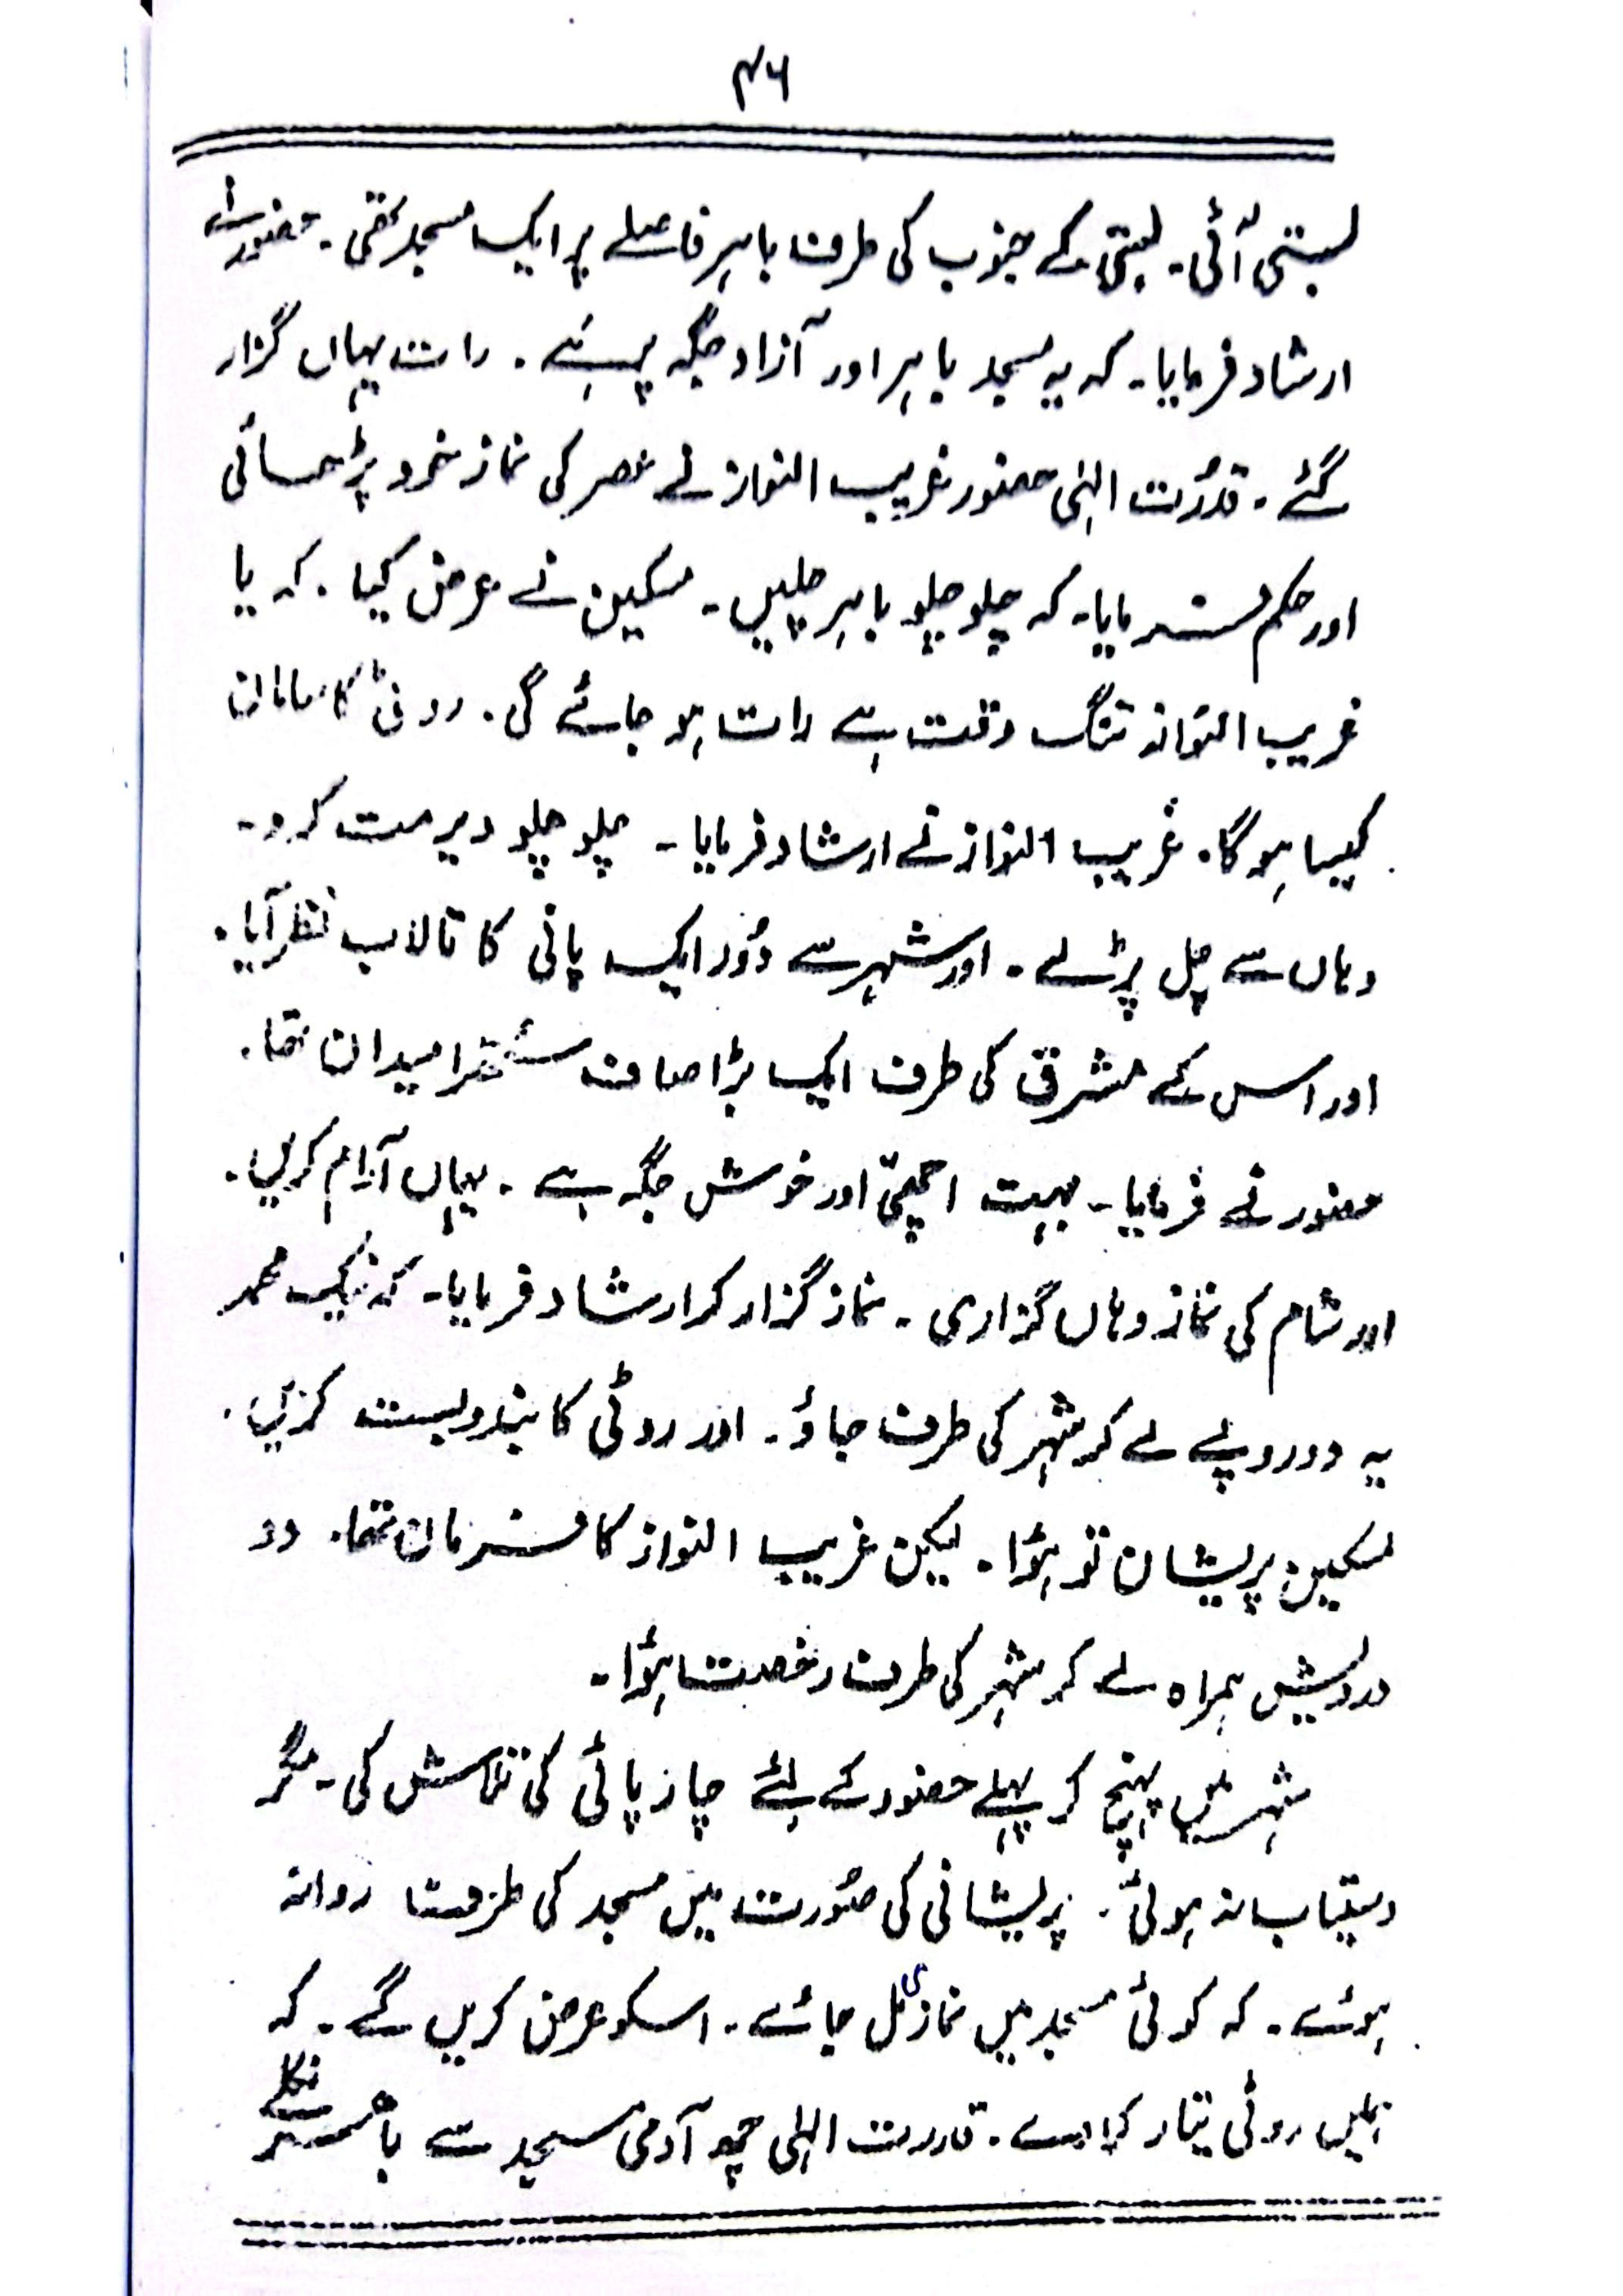 ۴۶
بستی آئی۔ بستی کے جنوب کی طرف باہر فاصلے پر ایک مسجد تھی۔ حضور نے
ارشاد فرمایا۔ کہ یہ مسجد باہر اور آزاد جگہ پر ہے۔ رات یہاں گزار
گئے۔ قدُرت الہٰی حضور غریب النواز نے عصر کی نماز خود پڑھائی
اور حکم فرمایا۔ کہ چلو چلو باہر چلیں۔ مسکین نے عرض کیا۔ کہ یا
غریب النواز تنگ وقت ہے رات ہو جائے گی۔ روٹی کا سامان
کیسا ہوگا۔ غریب النواز نے ارشاد فرمایا۔ چلو چلو دیر مت کرو۔
وہاں سے چل پڑے۔ اور شہر سے دُور ایک پانی کا تالاب نظر آیا۔
اور اس کے مشرق کی طرف ایک بڑا صاف ستھرا میدان تھا۔
حضور نے فرمایا۔ بہت اچھّی اور خوش جگہ ہے۔ یہاں آرام کریں۔
اور شام کی نماز وہاں گزاری۔ نماز گزار کر ارشاد فرمایا۔ کہ نیک محمد
یہ دو روپے لے کر شہر کی طرف جاؤ۔ اور روٹی کا بندوبست کریں۔
مسکین پریشان تو ہؤا۔ لیکن غریب النواز کا فرمان تھا۔ دو
درویش ہمراہ لے کر شہر کی طرف رخصت ہؤا۔
شہر میں پہنچ کر پہلے حضور کے لئے چارپائی کی تلاش کی۔ مگر
دستیاب نہ ہوئی۔ پریشانی کی صُورت میں مسجد کی طرف روانہ
ہوئے۔ کہ کوئی مسجد میں نمازی مل جائے۔ اسکو عرض کریں گے۔ کہ
ہمیں روٹی تیار کرا دے۔ قدرت الہٰی چھ آدمی مسجد سے باہر نکلے